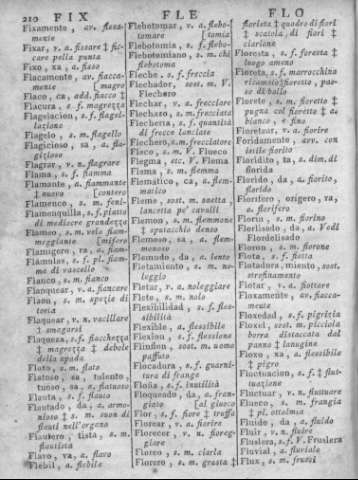 210 FIX
FLE
FLO
Fixamente, av. fissa-
mente
Fixar, v. a. fissare ‡ fic-
care pella punta
Fixo, xa, a. fisso
Flacamente, av. fiacca-
mente magro
Flaco, ca, add. fiacco ‡
Flacura, s. f. magrezza
Flagelacion, s. f. flagel-
lazione
Flagelo, s. m. flagello
Flagicioso, sa, a. fla-
gizioso
Flagrar, v. n. flagrare
Flama, s. f. fiamma
Flamante, a. fiammante
‡ nuovo [contero
Flamenco, s. m. feni-
Flamenquilla, s. f. piatto
di mediocre grandezza
Flameo, s. m. velo fiam-
meggiante [mifero
Flamigero, ra, a. fiam-
Flamulas, s. f. pl. fiam-
me di vascello
Flanco, s. m. fianco
Flanquear, v. a. fiancare
Flaon, s. m. spezie di
torta
Flaquear, v. n. vacillare
‡ smagarsi
Flaqueza, s. f. fiacchezza
‡ magrezza ‡ debole
della spada
Flato, s. m. flato
Flatoso, sa, tulento,
tuoso, sa, a. flatuoso
Flauta, s. f. flauto
Flautado, da, a. armo-
nioso ‡ s. m. suon di
flauti nell'organo
Flautero, tista, s. m.
flautista
Flavo, va, a. flavo
Flebil, a. flebile
Flebotomar, v. a. flebo-
tomare [tomia
Flebotomia, s. f. flebo-
Flebotomiano, s. m. chi
flebotoma
Fleche, s. f. freccia
Flechador, sost. m. V.
Flechero
Flechar, v. a. frecciare
Flechazo, s. m. frecciata
Flecheria, s. f. quantità
di frecce lanciate
Flechero, s. m. frecciatore
Fleco, s. m. V. Flueco
Flegma, etc. V. Flema
Flema, s. m. flemma
Flematico, ca, a. flem-
matico
Fleme, sost. m. saetta,
lancetta pe' cavalli
Flemon, s. m. flemmone
‡ sputacchio denso
Flemoso, sa, a. flem-
moso
Flemudo, da, a. lento
Fletamiento, s. m. no-
leggio
Fletar, v. a. noleggiare
Flete, s. m. nolo
Flexibilidad, s. f. fles-
sibilità
Flexible, a. flessibile
Flexion, s. f. flessione
Flinflon, sost. m. uomo
paffuto
Flocadura, s. f. guarni-
tura di frange
Flosia, s. f. inutilità
Floqueado, da, a. fran-
giato [al giuoco
Flor, s. f. fiore ‡ truffa
Florear, v. a. fiorire
Florecer, v. n. fioreg-
giare
Floreo, s. m. ciarla
Florero, s. m. grasta ‡
fiorista ‡ quadro di fiori
‡ scatola di fiori ‡
ciarlone
Floresta, s. f. foresta ‡
luogo ameno
Floreta, s. f. marrocchino
ricamato, fioretto, pas-
so di ballo
Florete, s. m. fioretto ‡
pugna col fioretto ‡ a.
bianco, e fino
Floretear, v. a. fiorire
Floridamente, avv. con
istile fiorito
Floridito, ta, s. dim. di
florida
Florido, da, a. fiorito,
florido
Florifero, origero, va,
a. florifero
Florin, s. m. fiorino
Florlisado, da, a. Vedi
Flordelisado
Floron, s. m. fiorone
Flota, s. f. flotta
Flotadura, miento, sost.
strofinamento
Flotar, v. a. flottare
Floxamente, av. fiacca-
mente
Floxedad, s. f. pigrizia
Floxel, sost. m. picciola
borra distaccata dal
panno ‡ lanugine
Floxo, xa, a. flessibile
‡ pigro
Fluctuacion, s. f. ‡ flut-
tuazione
Fluctuar, v. n. fluttuare
Flueco, s. m. frangia
‡ pl. ottolmia
Fluido, da, a. fluido
Fluir, v. n. fluire
Fluslera, s. f. V. Fruslera
Fluvial, a. fluviale
Flux, s. m. frussi